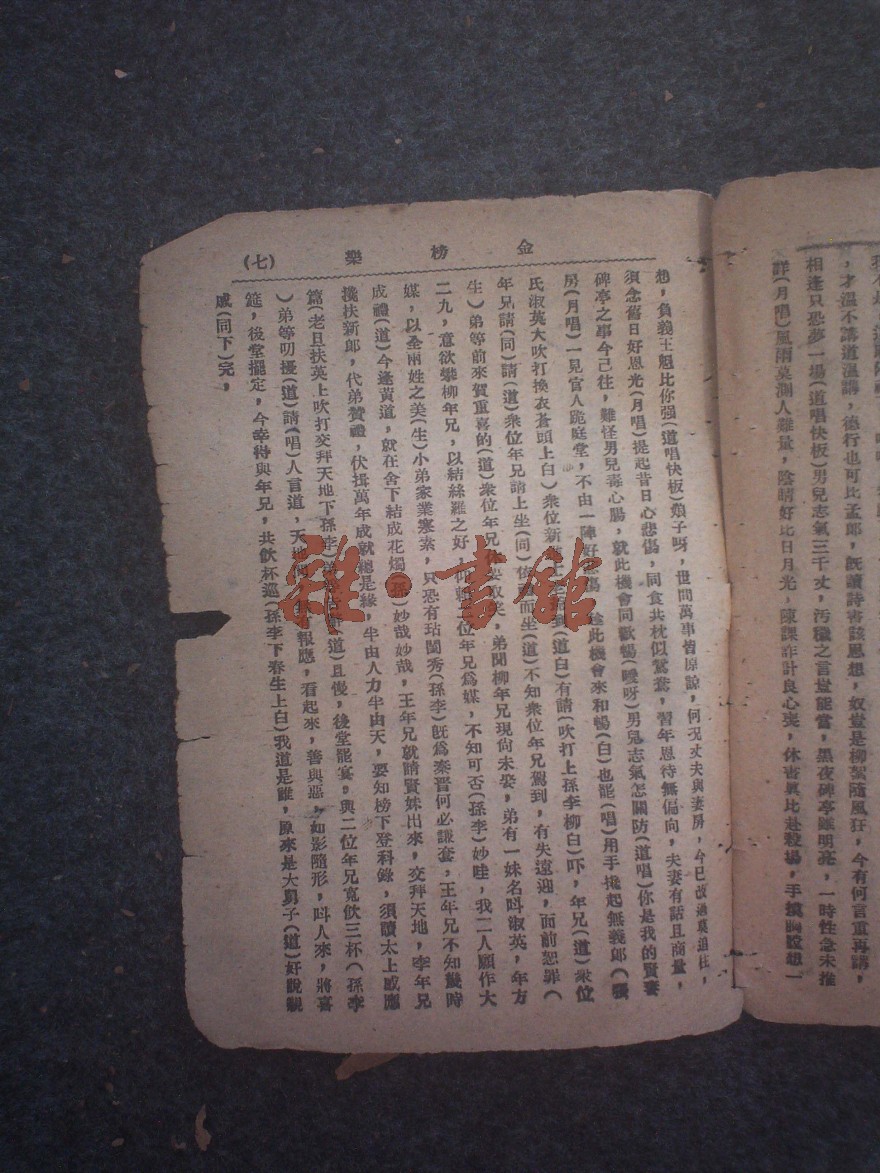 詳(月唱)風雨莫測人難量，陰晴好比日月光，陳課詐計良心喪，休書真比赴殺場，手摸胸膛想一
相逢只恐夢一場(道唱快板)男兒志氣三千丈，汚穢之言豈能當，黑夜碑亭雖明亮，一時性急未推
，才溫不講道溫講，德行也可比孟郎，旣讀詩書該思想，奴豈是柳絮隨風狂，今有何言重再講，
金榜樂
(七)
想，負義王魁比你强(道唱快板)娘子呀，世間萬事皆原諒，何況丈夫與妻房，今已改過莫追往，
須念舊日好恩光(月唱)提起昔日心悲傷，同食共枕似鴛鴦，習年恩待無偏向，夫妻有話且商量，
碑亭之事今已往，難怪男兒毒心腸，就此機會同歡暢(噯呀)男兒志氣怎關防(道唱)你是我的賢妻
房(月唱)一見官人跪庭堂，不由一陣好 傷 趁此機會來和暢(白)也罷(唱)用手攙起無義郎(
氏淑英大吹打換衣蒼頭上白)衆位新 到(道白)有請(吹打上孫李柳白)吓，年兄(道)衆位
年兄請(同)請(道)衆位年兄請上坐(同) 而坐(道)不知衆位年兄駕到，有失遠迎，面前恕罪(
生)弟等前來賀重喜的(道)衆位年兄 要取笑，弟聞柳年兄現尙未娶，弟有一妹名叫淑英，年方
二九，意欲攀柳年兄，以結絲羅之好， 位年兄爲媒，不知可否(孫李)妙哇，我二人願作大
媒，以全兩姓之美(生)小弟家業寒素，只恐有玷閨秀(孫李)旣爲秦晉何必謙套，王年兄不知幾時
成禮(道)今逢黃道，就在舍下結成花燭(孫)妙哉妙哉，王年兄就請賢妹出來，交拜天地，李年兄
攙扶新郞，代弟贊禮，伏揖萬年成就總是緣，半由人力半由天，要知榜下登科錄，須讀太上感應
篇(老旦扶英上吹打交拜天地下孫李) (道)且慢，後堂罷宴，與二位年兄寬飲三杯(孫李
)弟等叨擾(道)請(唱)人言道，天地 報應，看起來，善與惡，如影隨形，叫人來，將喜
筵，後堂擺定，今幸得與年兄，共飮杯巡(孫李下春生上白)我道是誰，原來是大舅子(道)好說親
戚(同下)完，
雜·書館